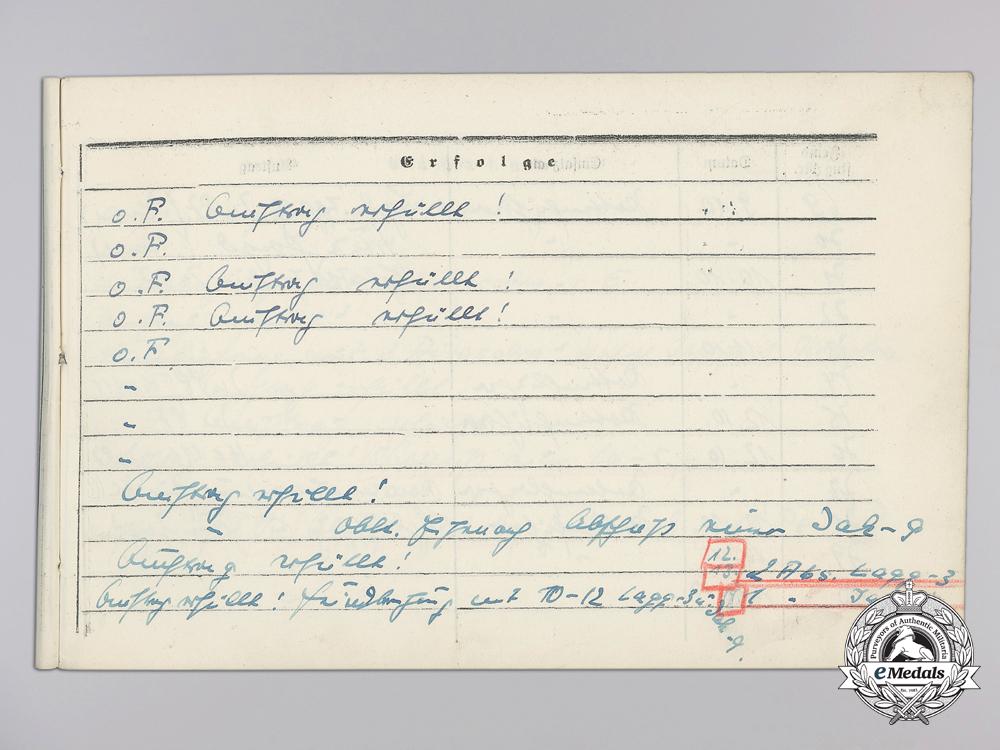 Erfolge
o. F. Auftrag erfüllt!
o. F.
o. F. Auftrag erfüllt!
o. F. Auftrag erfüllt!
o. F
"
"
"
Auftrag erfüllt!
" Oblt. Abschuß einer Jak-9
Auftrag erfüllt!
12.
13. 2 Abs. Lagg-3
Auftrag erfüllt! Feindberührung mit 10-12 Lagg-3 u. Jak-9. 1 "
Purveyors of Authentic Militaria
eMedals